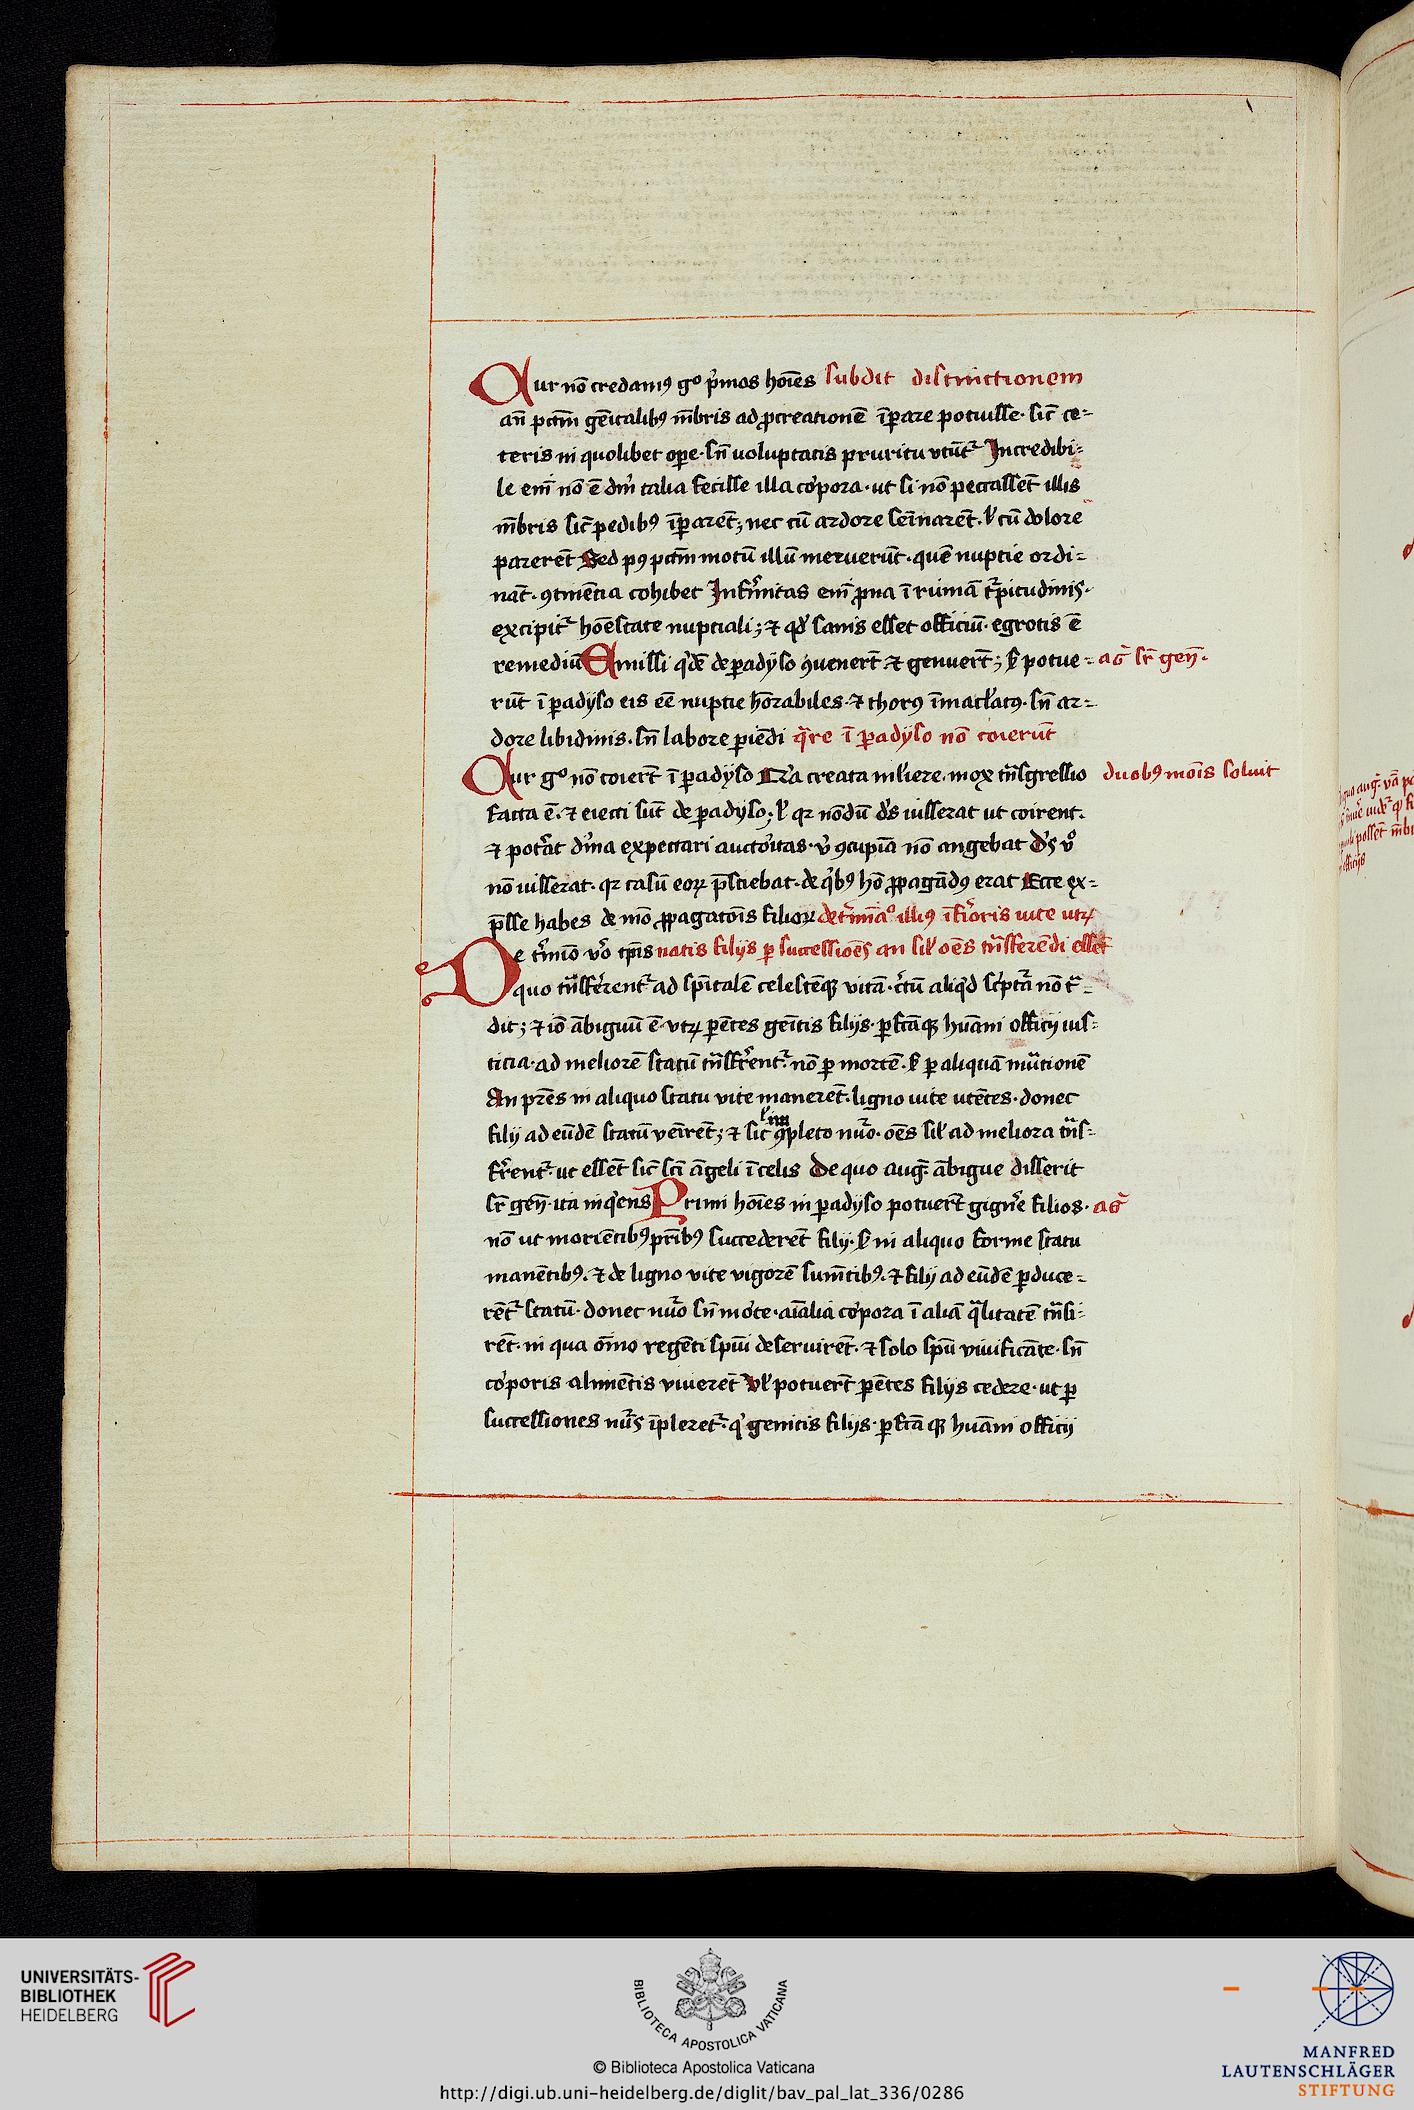 Cur nō credamꝰ gͦ p̾mos hoīes subdit distinctionem
an̄ pctm̄ gēitalibꝰ mēbris ad ꝓcreationē īꝑare potuisse· sic̄ ce=
teris in quolibet oꝑe· sn̄ uoluptatis pruritu vtūt᷑ Incredibi=
le em̄ nō ē dm̄ talia fecisse illa corpora· ut si nō peccassēt illis
mēbris sic̄ pedibꝰ īꝑarēt; nec cū ardore seīnarēt· ł cū dolore
parerēt Sed pꝰ pctm̄ motū illū meruerūt· quē nuptie ordi=
nāt· ꝯtinētia cohibet Infirmitas em̄ ꝓna ī ruinā turpitudinis·
excipit᷑ hoēstate nuptiali; ⁊ qd̾ sanis esset officiū· egrotis ē
remediū Emissi q̾dē de ꝑadyso ꝯuenerūt ⁊ genuerūt; sꝫ potue= ag̾ sr̄ gen̄·
rūt ī ꝑadyso eis eē nuptie honorabiles· ⁊ thorꝰ īmaclatꝰ· sn̄ ar=
dore libidinis· sn̄ labore ꝑiēdi qͣre ī ꝑadyso nō coierūt
Cur gͦ nō coierūt ī ꝑadyso Qͣa creata mliere· mox tn̄sgressio duobꝰ mōis soluit
facta ē· ⁊ eiecti sūt de ꝑadyso; ł qꝛ nōdū dꝰs iusserat ut coirent·
⁊ poterat diuina expectari auctoritas· ū ꝯcupīa nō angebat Dꝰs vͦ
nō iusserat· qꝛ casū eoꝝ p̄sciebat· de q̾bꝰ hō ꝓpagādꝰ erat Ecce ex=
p̄sse habes de mō ꝓpagatōis filioꝝ det̾mīaͦ illiꝰ īferioris uite utꝝ
De t̾mīo vͦo tp̄is natis filijs ꝑ successioēs an sił oēs tn̄sferēdi essēt
quo tn̄sferrent᷑ ad sp̄italē celestēqꝫ vitā· certū aliq̾d scriptͣa nō tͣ=
dit; ⁊ iō ābiguū ē· vtꝝ parētes geītis filijs· ꝑfctāqꝫ huāni officij ius=
ticia· ad meliorē statū tn̄sferrent᷑· nō ꝑ mortē· sꝫ ꝑ aliquā mutationē
An pr̄es in aliquo statu vite manerēt· ligno uite utētes· donec
filij ad eūdē statū venirēt; ⁊ sic ꝯpleto nūo· oēs sił ad meliora tn̄s=
ferrent᷑· ut essēt sic̄ sc̄i āgeli ī celis De quo aug̾· ābigue disserit
sr̄ gen̄· ita inq̾ens Primi hoīes in ꝑadyso potuerūt gign̄e filios· ag̾
nō ut moriētibꝰ pr̄ibꝰ succederēt filij· sꝫ in aliquo forme statu
manētibꝰ· ⁊ de ligno vite vigorē sumētibꝰ· ⁊ filij ad eūdē ꝑduce=
rēt᷑ statū· donec nūo sn̄ morte· aīalia corpora ī aliā qͣlitatē tn̄si=
rēt· in qua oīno regēti spīui deseruirēt· ⁊ solo spū viuificāte· sn̄
corporis alimētis viuerēt Vł potuerūt parētes filijs cedere· ut ꝑ
successiones nūs īpleret᷑· q̾ genitis filijs· ꝑfctā qꝫ huāni officij
UNIVERSITÄTS-
BIBLIOTHEK
HEIDELBERG
BIBLIOTECA APOSTOLICA VATICANA
© Biblioteca Apostolica Vaticana
http://digi.ub.uni-heidelberg.de/diglit/bav_pal_lat_336/0286
MANFRED
LAUTENSCHLÄGER
STIFTUNG